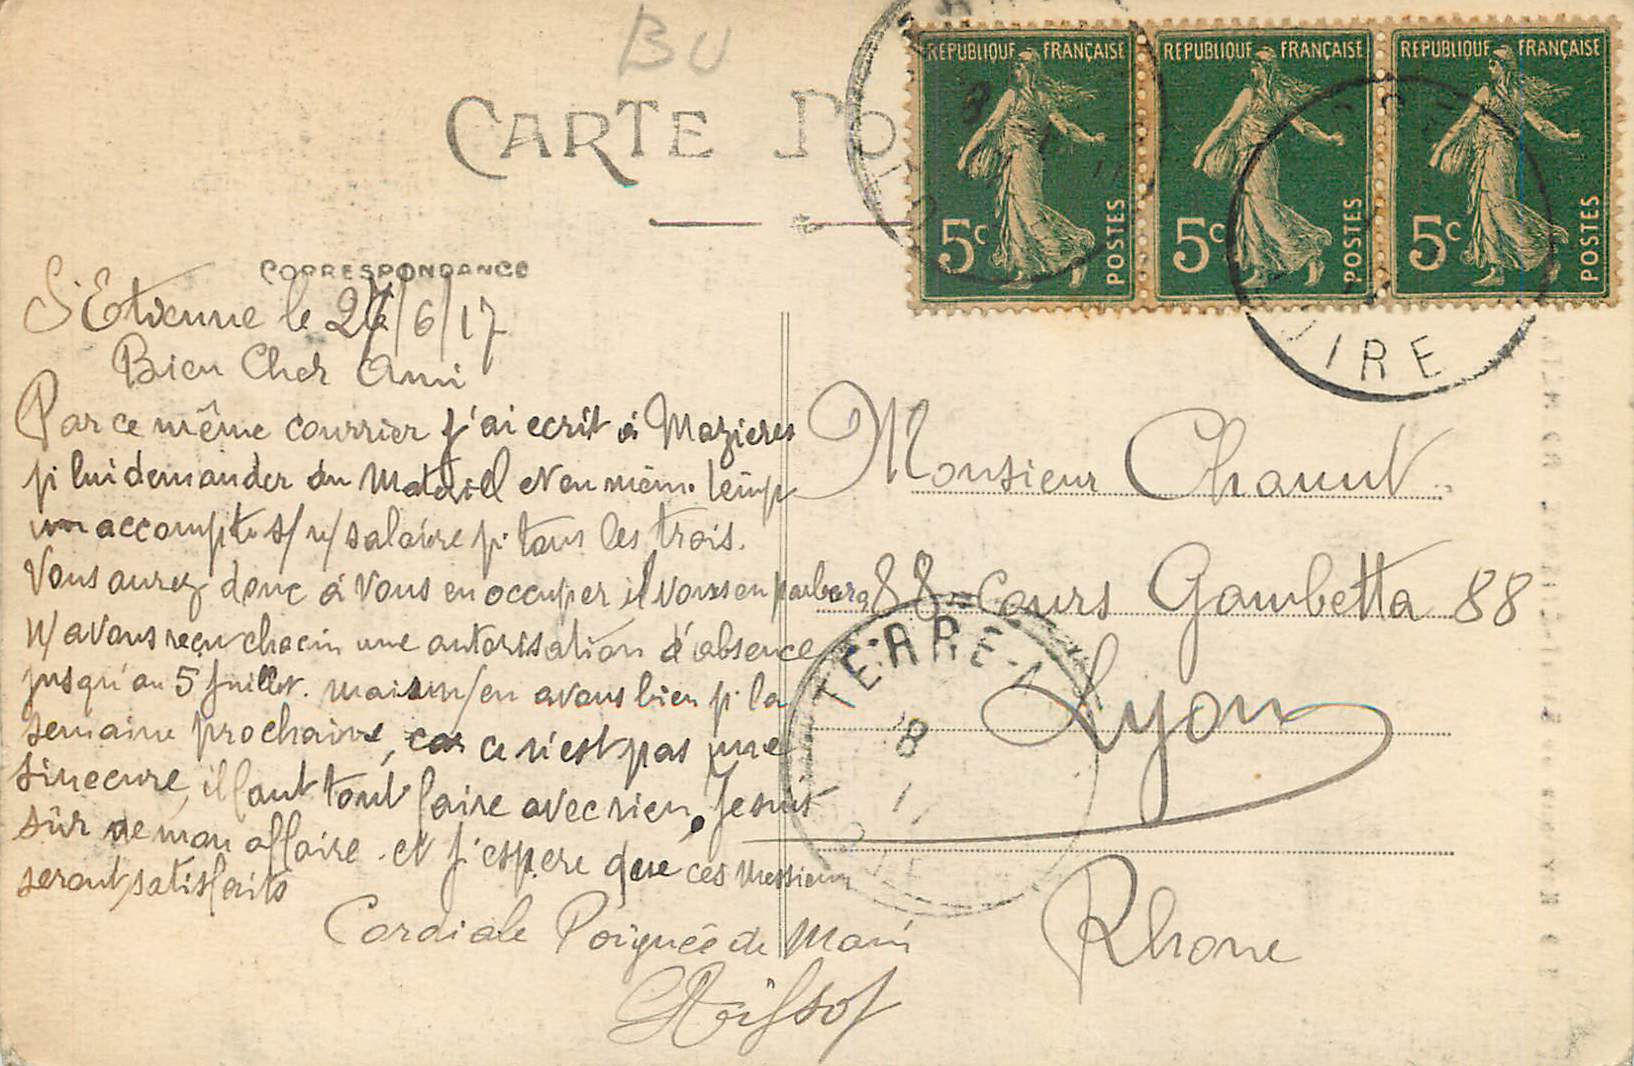 BU
CARTE
RÉPUBLIQUE FRANÇAISE
5c POSTES
RÉPUBLIQUE FRANÇAISE
5c POSTES
RÉPUBLIQUE FRANÇAISE
5c POSTES
OIRE
CORRESPONDANCE
St Etienne le 27/6/17
Bien Cher Ami
Par ce même courrier j'ai ecrit à Mazieres
pr lui demander du Materiel et en même temps
un accompte s/ n/ salaire pr tous les trois.
Vous aurez donc à Vous en occuper il vous en parlera
N/ avons reçu chacun une autorisation d'absence
jusqu'au 5 Juillet. mais n/ en avons bien pr la
semaine prochaine, car ce n'est pas une
sinecure, il faut tout faire avec rien, Je suis
sûr de mon affaire et j'espere que ces Messieurs
seront satisfaits
Cordiale Poignée de Main
Monsieur Chaunt
88 - Cours Gambetta 88
Lyon
Rhone
TERRE-N